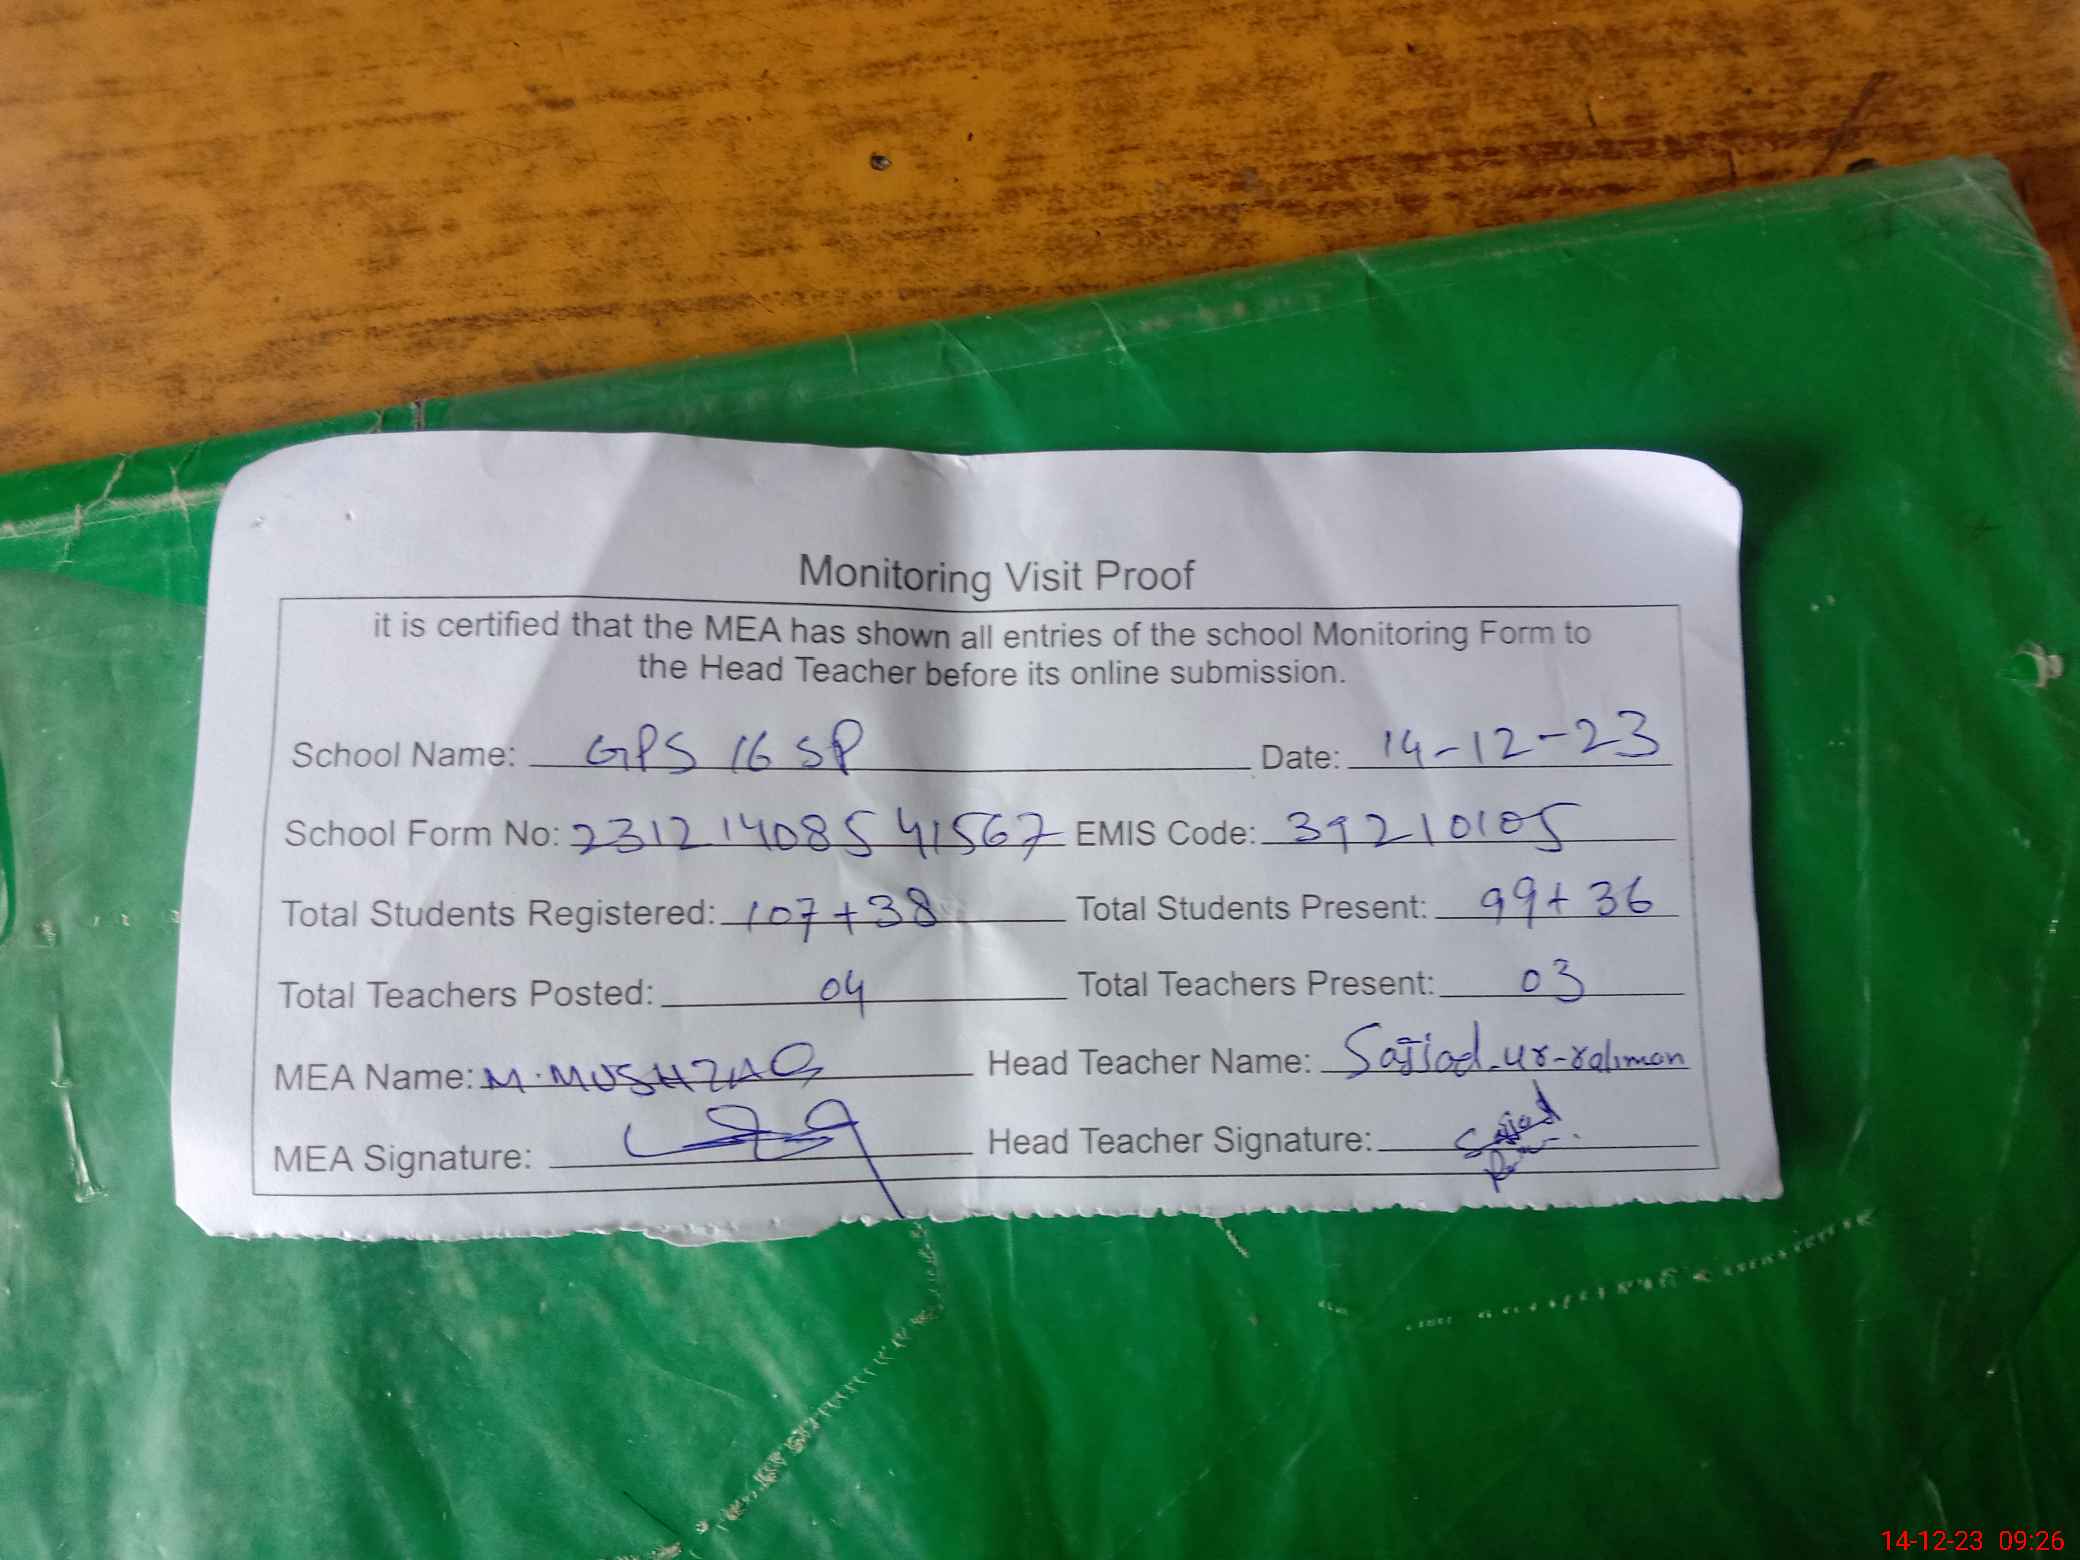 Monitoring Visit Proof
it is certified that the MEA has shown all entries of the school Monitoring Form to
the Head Teacher before its online submission.
School Name: GPS 16 SP Date: 14-12-23
School Form No: 231214085 41567 EMIS Code: 39210105
Total Students Registered: 107+38 Total Students Present: 99+36
Total Teachers Posted: 04 Total Teachers Present: 03
MEA Name: M.MUSHTAQ Head Teacher Name: Sajjad-ur-rahman
MEA Signature: Head Teacher Signature: Sajjad
14-12-23 09:26